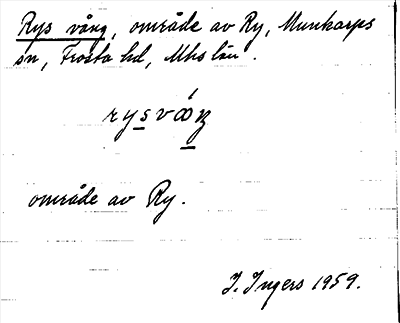 Rys vång, område av Ry, Munkarps
sn, Frosta hd, Mhs län.
rysvåŋ
område av Ry.
I. Ingers 1959.